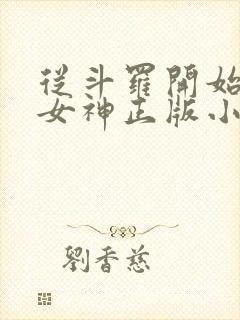 從斗羅開始
女神正版小
劉香慈